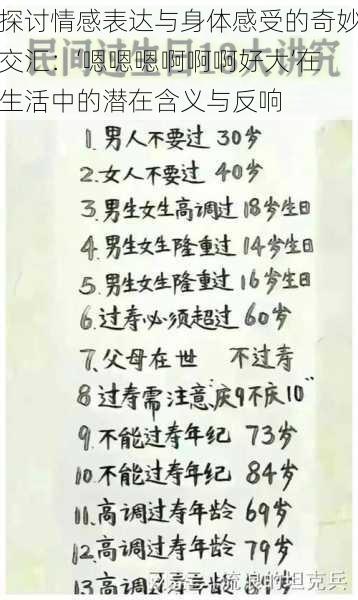 探讨情感表达与身体感受的奇妙
交汇：“嗯嗯嗯 啊啊啊好大”在
生活中的潜在含义与反响
民间过生日13大讲究
1.男人不要过 30岁
2.女人不要过 40岁
3.男生女生高调过 18岁生日
4.男生女生隆重过 14岁生日
5.男生女生隆重过 16岁生日
6.过寿必须超过 60岁
7.父母在世 不过寿
8过寿需注意“庆9不庆10”
9.不能过寿年纪 73岁
10.不能过寿年纪 84岁
11.高调过寿年龄 69岁
12.高调过寿年龄 79岁
13高调
流浪的坦克兵